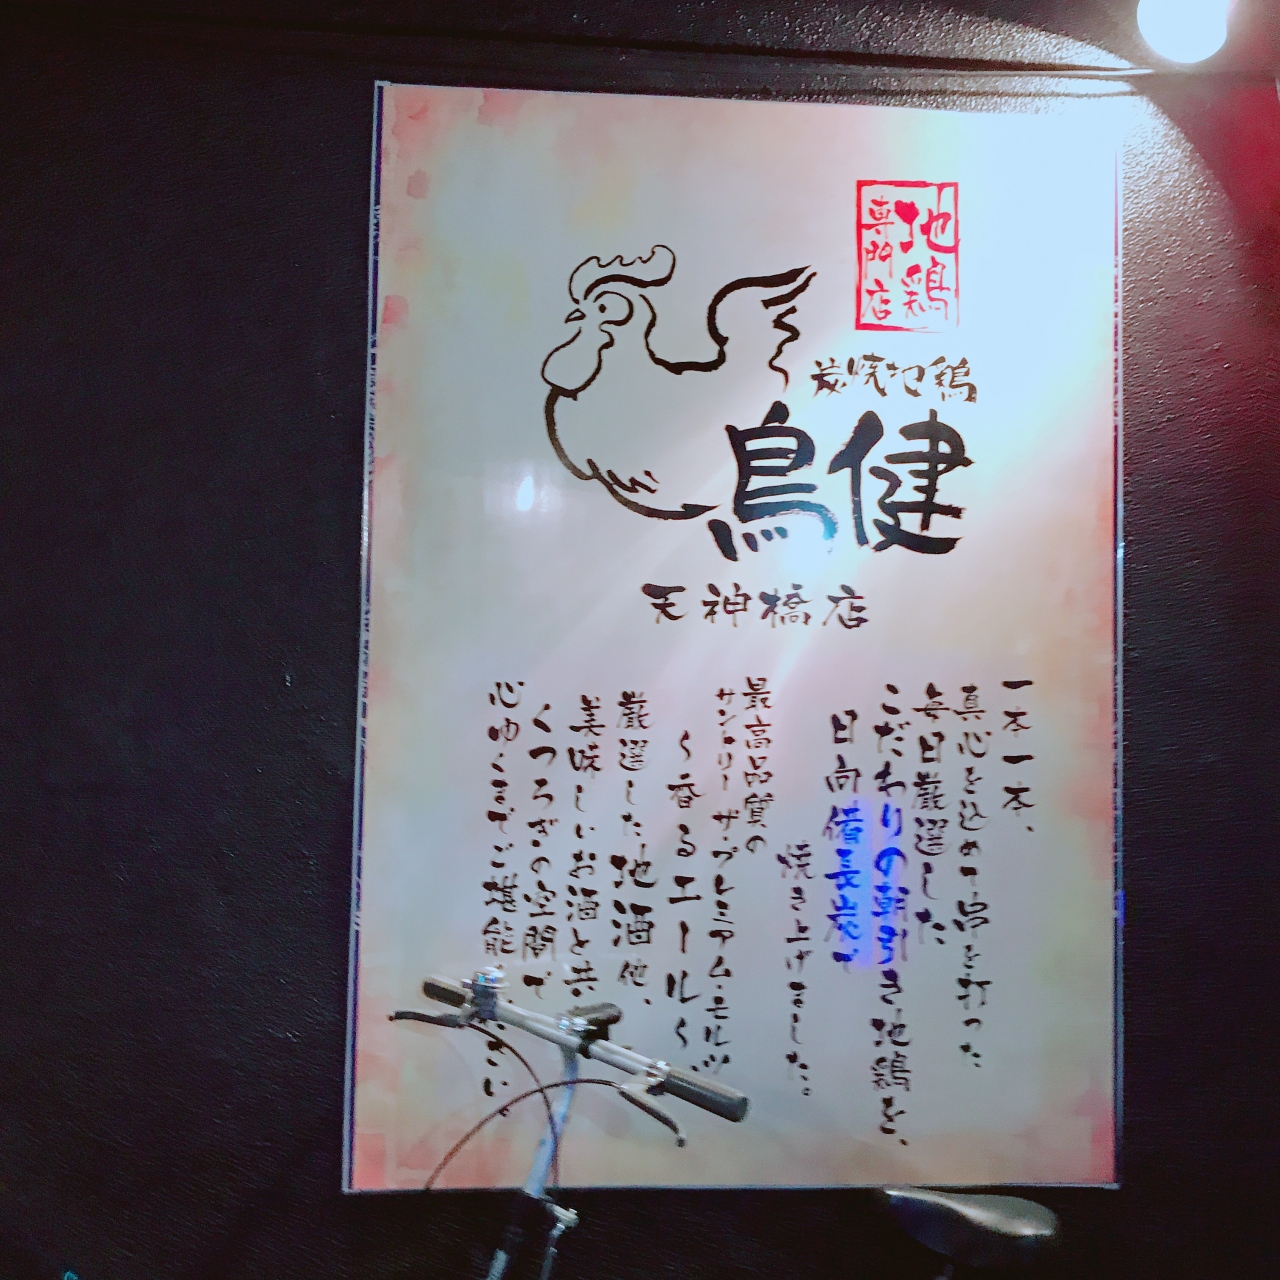 地鶏
専門店
炭焼地鶏
鳥健
天神橋店
一本一本、
真心を込めて串を打った
毎日厳選した
こだわりの朝引き地鶏を、
日向備長炭で
焼き上げました。
最高品質の
サントリー ザ・プレミアム・モルツ
〜香るエール〜、
厳選した地酒他、
美味しいお酒と共
くつろぎの空間で
心ゆくまでご堪能
さい。